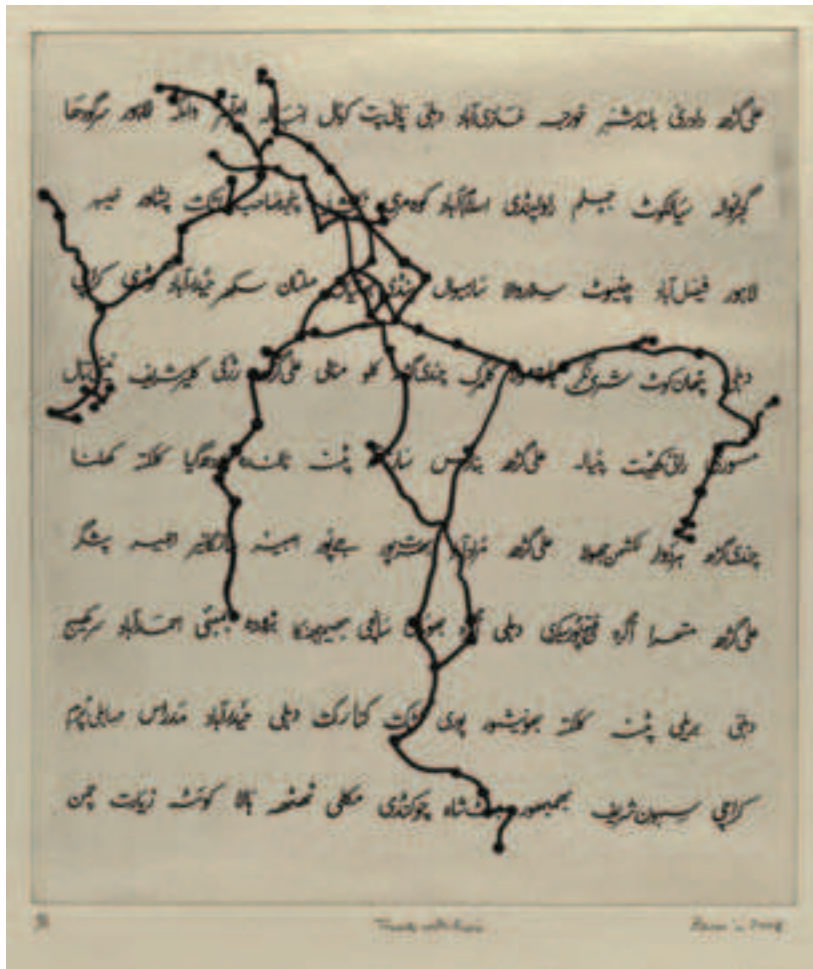 علی گڑھ دادری بلند شہر خورجہ غازی آباد دہلی پانی پت کرنال انبالہ امرتسر واگہ لاہور سرگودھا
گجرانوالہ سیالکوٹ جہلم راولپنڈی اسلام آباد کوہ مری پنجہ صاحب اٹک پشاور خیبر
لاہور فیصل آباد چنیوٹ ساہیوال ملتان سکھر حیدرآباد کوٹری کراچی
دہلی پٹھان کوٹ شری نگر گلمرگ چندی گڑھ کلو منالی علی گڑھ رڑکی کلیر شریف نینی تال
مسوری رانی کھیت پٹیالہ علی گڑھ بنارس پٹنہ نالندہ بودھ گیا کلکتہ کھلنا
چندی گڑھ ہردوار لکشمن جھولا علی گڑھ مرادآباد بھرتپور جے پور
علی گڑھ متھرا آگرہ فتح پور سیکری دہلی آگرہ بھوپال سانچی بڑودہ بمبئی احمدآباد سرکھیج
دہلی بریلی پٹنہ کلکتہ بھونیشور پوری کٹک کنارک دہلی حیدرآباد مدراس مہابلی پرم
کراچی سیہون شریف بھمبھور بھٹ شاہ چوکنڈی مکلی ٹھٹھہ ہالا کوئٹہ زیارت چمن